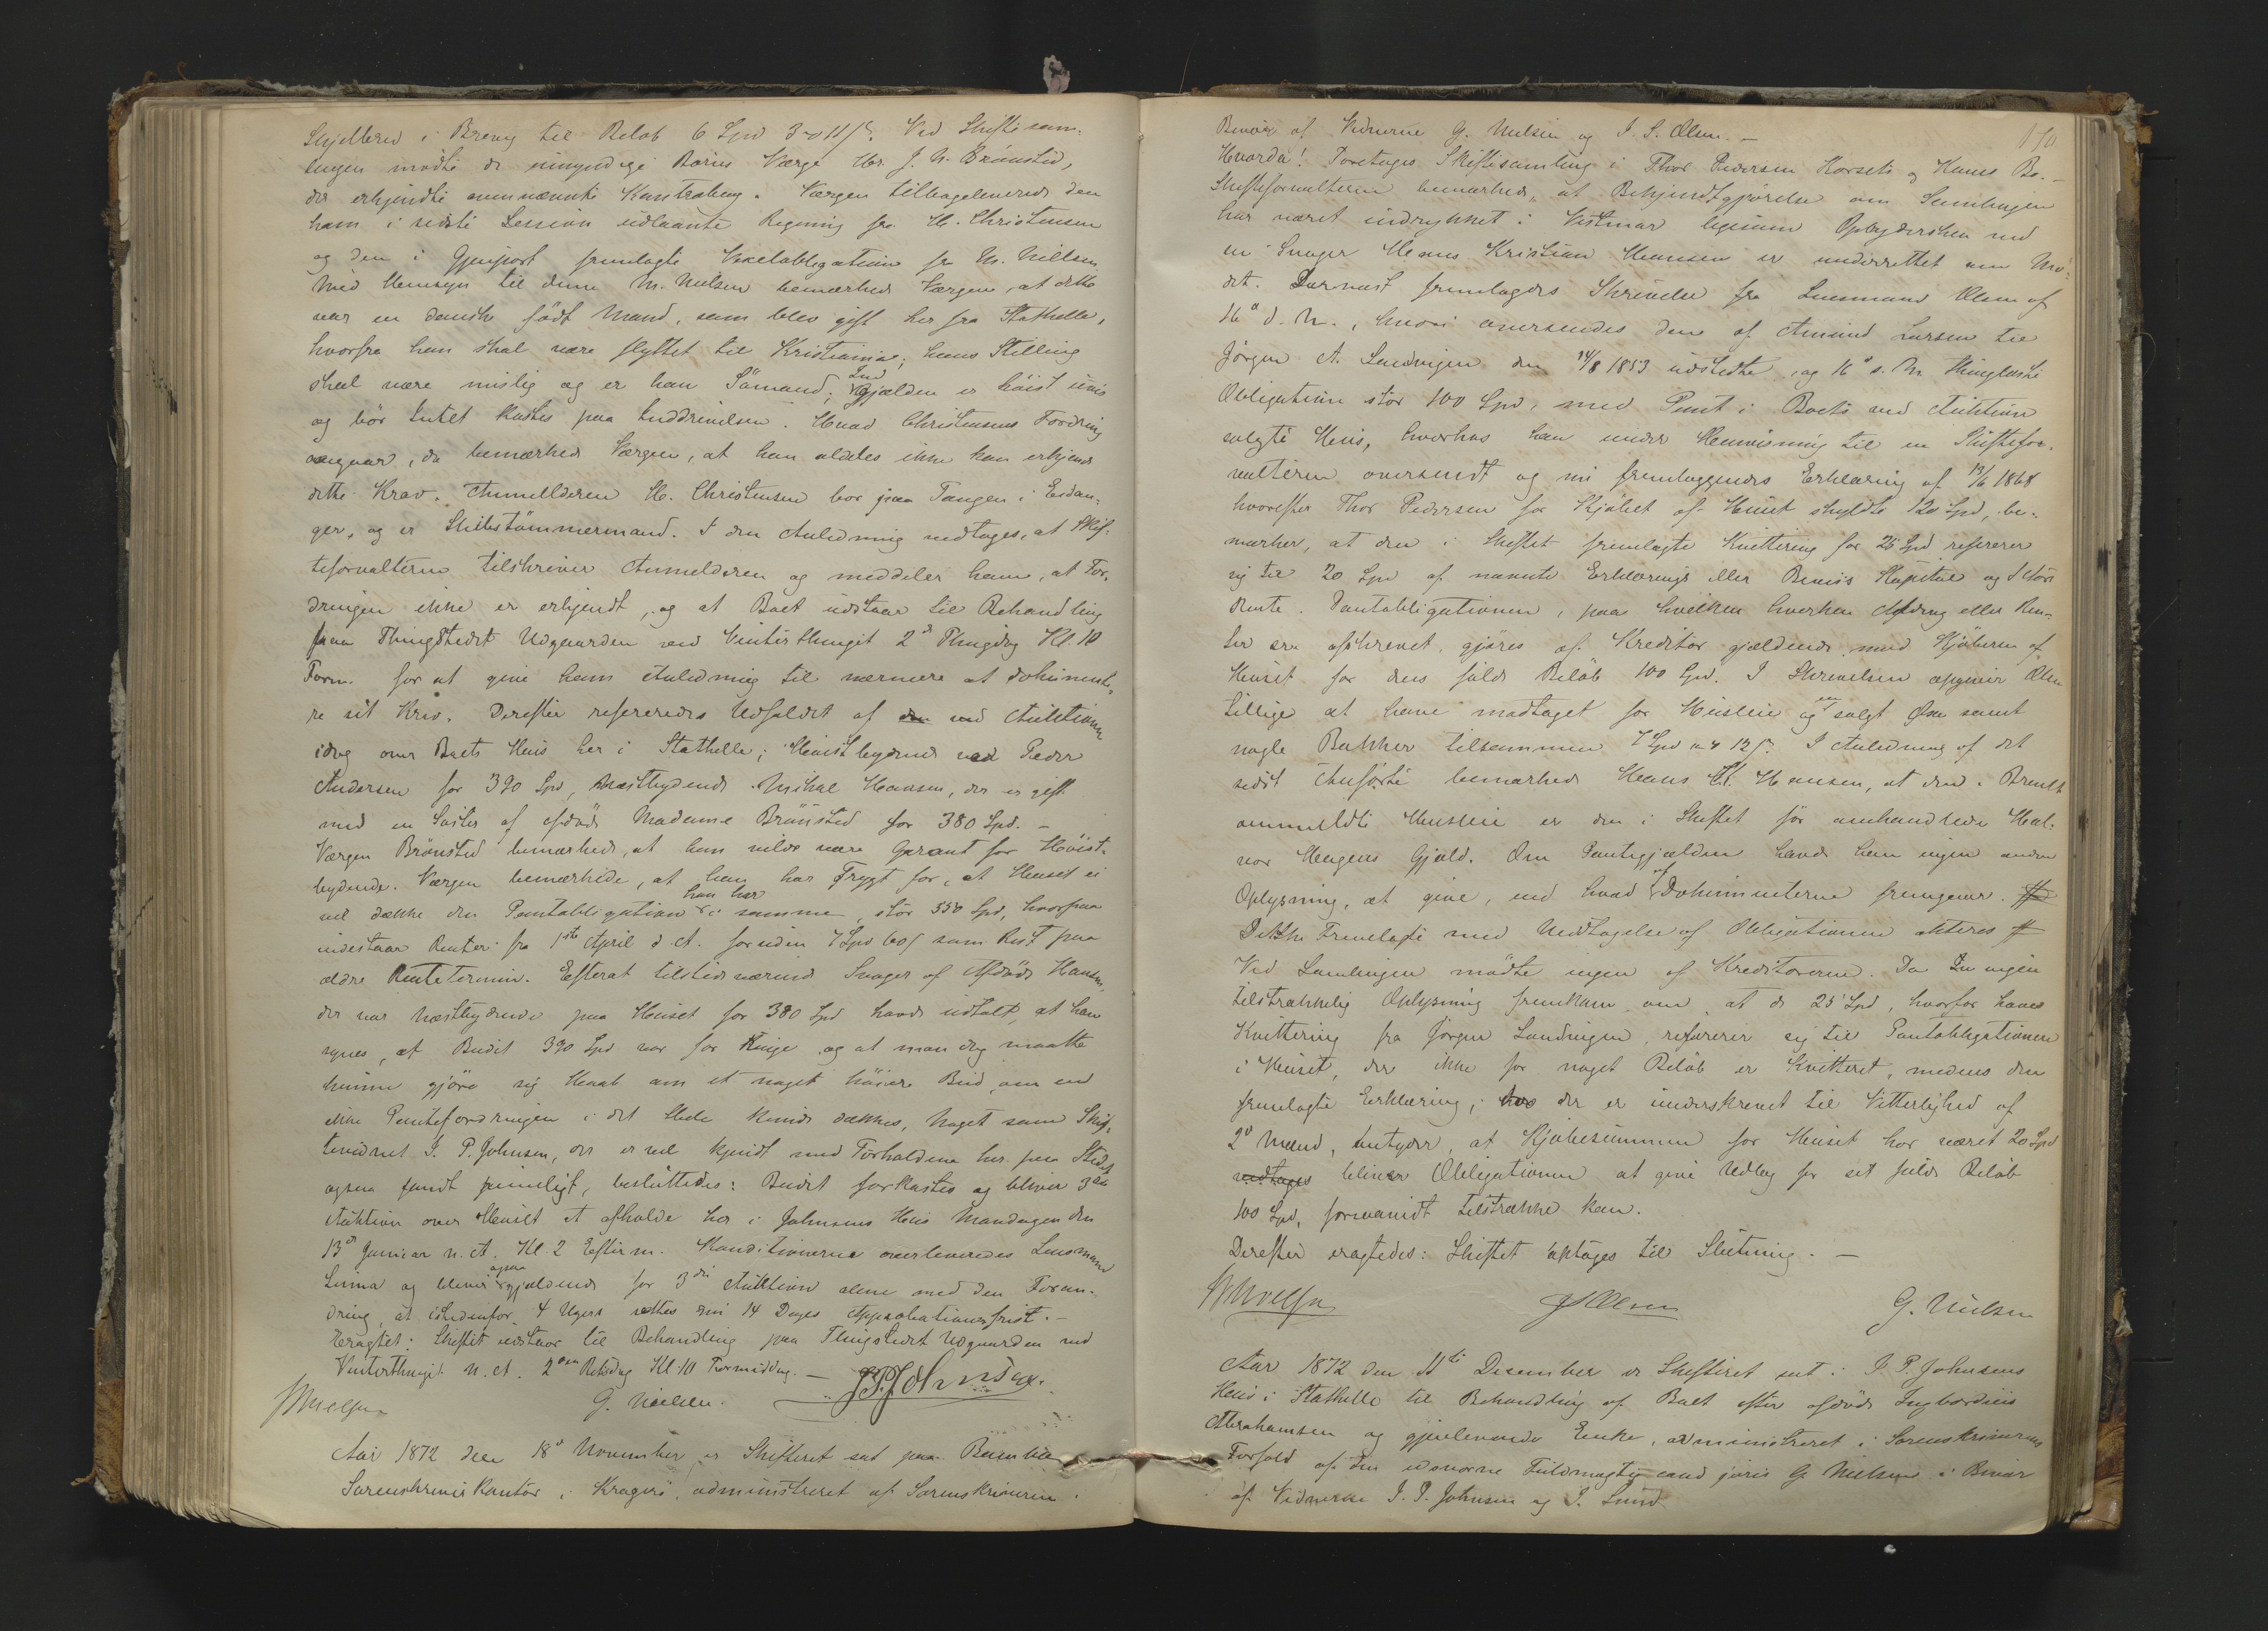 Skjelbred i Brevig til Beløb 6 Spd 3 11 s. Ved Skiftesam-
lingen mødte de umyndige Børns Værge Hr. J. N. Brønsted,
der erkjendte ovennævnte Kontrabog. Værgen tilbageleverede den
ham i sidste Session udlaante Regning fra H. Christensen
og den i Gjenpart fremlagte Vexelobligation fra M. Nielsen
Med Hensyn til denne M. Nielsen bemærkede Værgen, at dette
var en dansk født Mand, som blev gift her fra Stathelle,
hvorfra han skal være flyttet til Kristiania; hans Stilling
skal være mislig og er han Sömand; Gjælden er höist uvis
og bør Intet kostes paa Inddrivelsen. Hvad Christensens Fordring
angaar, da bemærkede Værgen, at han aldeles ikke kan erkjende
dette Krav. Anmelderen H. Christensen bor paa Tangen i Eidan-
ger, og er Skibstömmermand. I den Anledning vedtoges, at Skif-
teforvalteren tilskriver Anmelderen og meddeler ham, at For-
dringen ikke er erkjendt, og at Boet udstaar til Behandling
paa Thingstedet Udgaarden ved Vinterthinget 2d Thingdag Kl. 10
Form. for at give ham Anledning til nærmere at dokumente-
re sit Krav. Derefter refereredes Udfaldet af den ved Auktionen
idag over Boets Hus her i Stathelle; Høistbydende ved Peder
Andersen for 390 Spd, Næstbydende Mikal Hansen, der er gift
med en Søster af afdøde Madame Brönsted for 380 Spd. —
Værgen Brönsted bemærkede, at han vilde være Garant for Höist-
bydende. Værgen bemærkede, at han har Frygt for, at Huset ei
vil dække den Pantobligation han har i samme, stör 550 Spd, hvorpaa
indestaar Renter fra 1ste April d. A. foruden 7 Spd 60 s som Rest paa
ældre Rentetermin. Efterat tilstedeværende Svoger af Afdöde Hansen,
der var Næstbydende paa Huset for 380 Spd havde udtalt, at han
synes, at Budet 390 Spd var for ringe og at man dog maatte
kunne gjöre sig Haab om et noget höiere Bud, om end
ikke Pantefordringen i det Hele kunde dækkes, Noget som Skif-
tevidnet J. P. Johnsen, der er vel kjendt med Forholdene her paa Stedet
ogsaa fandt rimeligt, besluttedes: Budet forkastes og bliver 3die
Auktion over Huset at afholde her i Johnsens Hus Mandagen den
13de Januar n. A. Kl. 2 Efterm. Konditionerne overleveredes Lensmand
og bliver ogsaa gjældende for 3die Auktion alene med den Foran-
dring, at istedenfor 4 Ugers sættes en 14 Dages Approbationsfrist. —
Eragtet: Skiftet udstaar til Behandling paa Thingstedet Udgaarden ved
Vinterthinget n. A. 2den Retsdag Kl. 10 Formiddag. —
G. Nielsen. J. P. Johnsen.
Aar 1872 den 18de November er Skifteret sat paa Bamble
Sorenskriverkontor i Kragerö, administreret af Sorenskriveren i
Bivær af Vidnerne G. Nielsen og J. S. Olsen. —
Hvorda! Foretoges Skiftesamling i Thor Pedersen Korsets og Kones Bo. —
Skifteforvalteren bemærkede, at Bekjendtgjörelse om Samlingen
har været indrykket i Vestmar ligesom Opbydersken ved
sin Svoger Hans Kristian Hansen er underrettet om Mö-
det. Dernæst fremlagdes Skrivelse fra Lensmand Olsen af
16de d. M., hvori oversendes den af Amund Larsen til
Jörgen A. Sundingen den 14/8 1853 udstedte, og 16de s. M. thinglæste
Obligation stör 100 Spd, med Pant i Boets ved Auktion
solgte Hus, hvorhos han under Henvisning til en Skiftefor-
valteren oversendt og nu fremlæggendes Erklæring af 19/6 1868
hvorefter Thor Pedersen for Kjöbet af Huset skyldte 120 Spd, be-
mærker, at den i Skiftet fremlagte Kvittering for 25 Spd refererer
sig til 20 Spd af nævnte Erklærings eller Bevis's Kapital og 5 i
Rente. Pantobligationen, paa hvilken hverken Afdrag eller Ren-
ter ere afskrevet, gjöres af Kreditor gjældende mod Kjöberen af
Huset for dens fulde Belöb 100 Spd. I Skrivelsen opgiver Olsen
tillige at have modtaget for Husleie og en solgt Øxe samt
nogle Bukker tilsammen 7 Spd 4 12 s. I Anledning af det
sidst Anförte bemærkede Hans Kr. Hansen, at den i Brevet
ommeldte Husleie er den i Skiftet för omhandlede Hal-
vor Haugens Gjæld. Om Pantegjælden havde han ingen anden
Oplysning at give, end hvad af Dokumenterne fremgaar.
Det Fremlagte med Undtagelse af Obligationen akteres
Ved Samlingen mödte ingen af Kreditorerne. Da ingen
tilstrækkelig Oplysning fremkom om, at de 25 Spd, hvorfor haves
Kvittering fra Jörgen Sundingen, refererer sig til Pantobligationen
i Huset, der ikke for noget Belöb er kvitteret, medens den
fremlagte Erklæring, der er underskrevet til Vitterlighed af
2de Mænd, antyder, at Kjöbesummen for Huset har været 20 Spd
vedtoges bliver Obligationen at give Udlæg for sit fulde Belöb
100 Spd, forsaavidt tilstrække kan.
Derefter eragtedes: Skiftet optages til Slutning. —
JSOlsen G. Nielsen
Aar 1872 den 11te December er Skifteret sat i J. P. Johnsens
Hus i Stathelle til Behandling af Boet efter afdöde Ingebor
Abrahamsen og gjenlevende Enke, administreret i Sorenskriverens
Forfald af den edsvorne Fuldmægtig cand juris G. Nielsen i Bivær
af Vidnerne J. P. Johnsen og P. Lund.